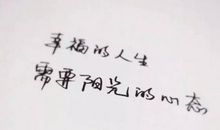 幸福的人生
需要阳光的心态